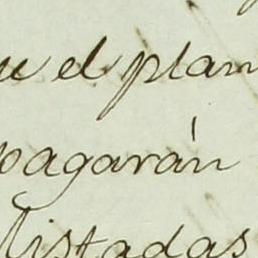 el plan
pagarán
listadas